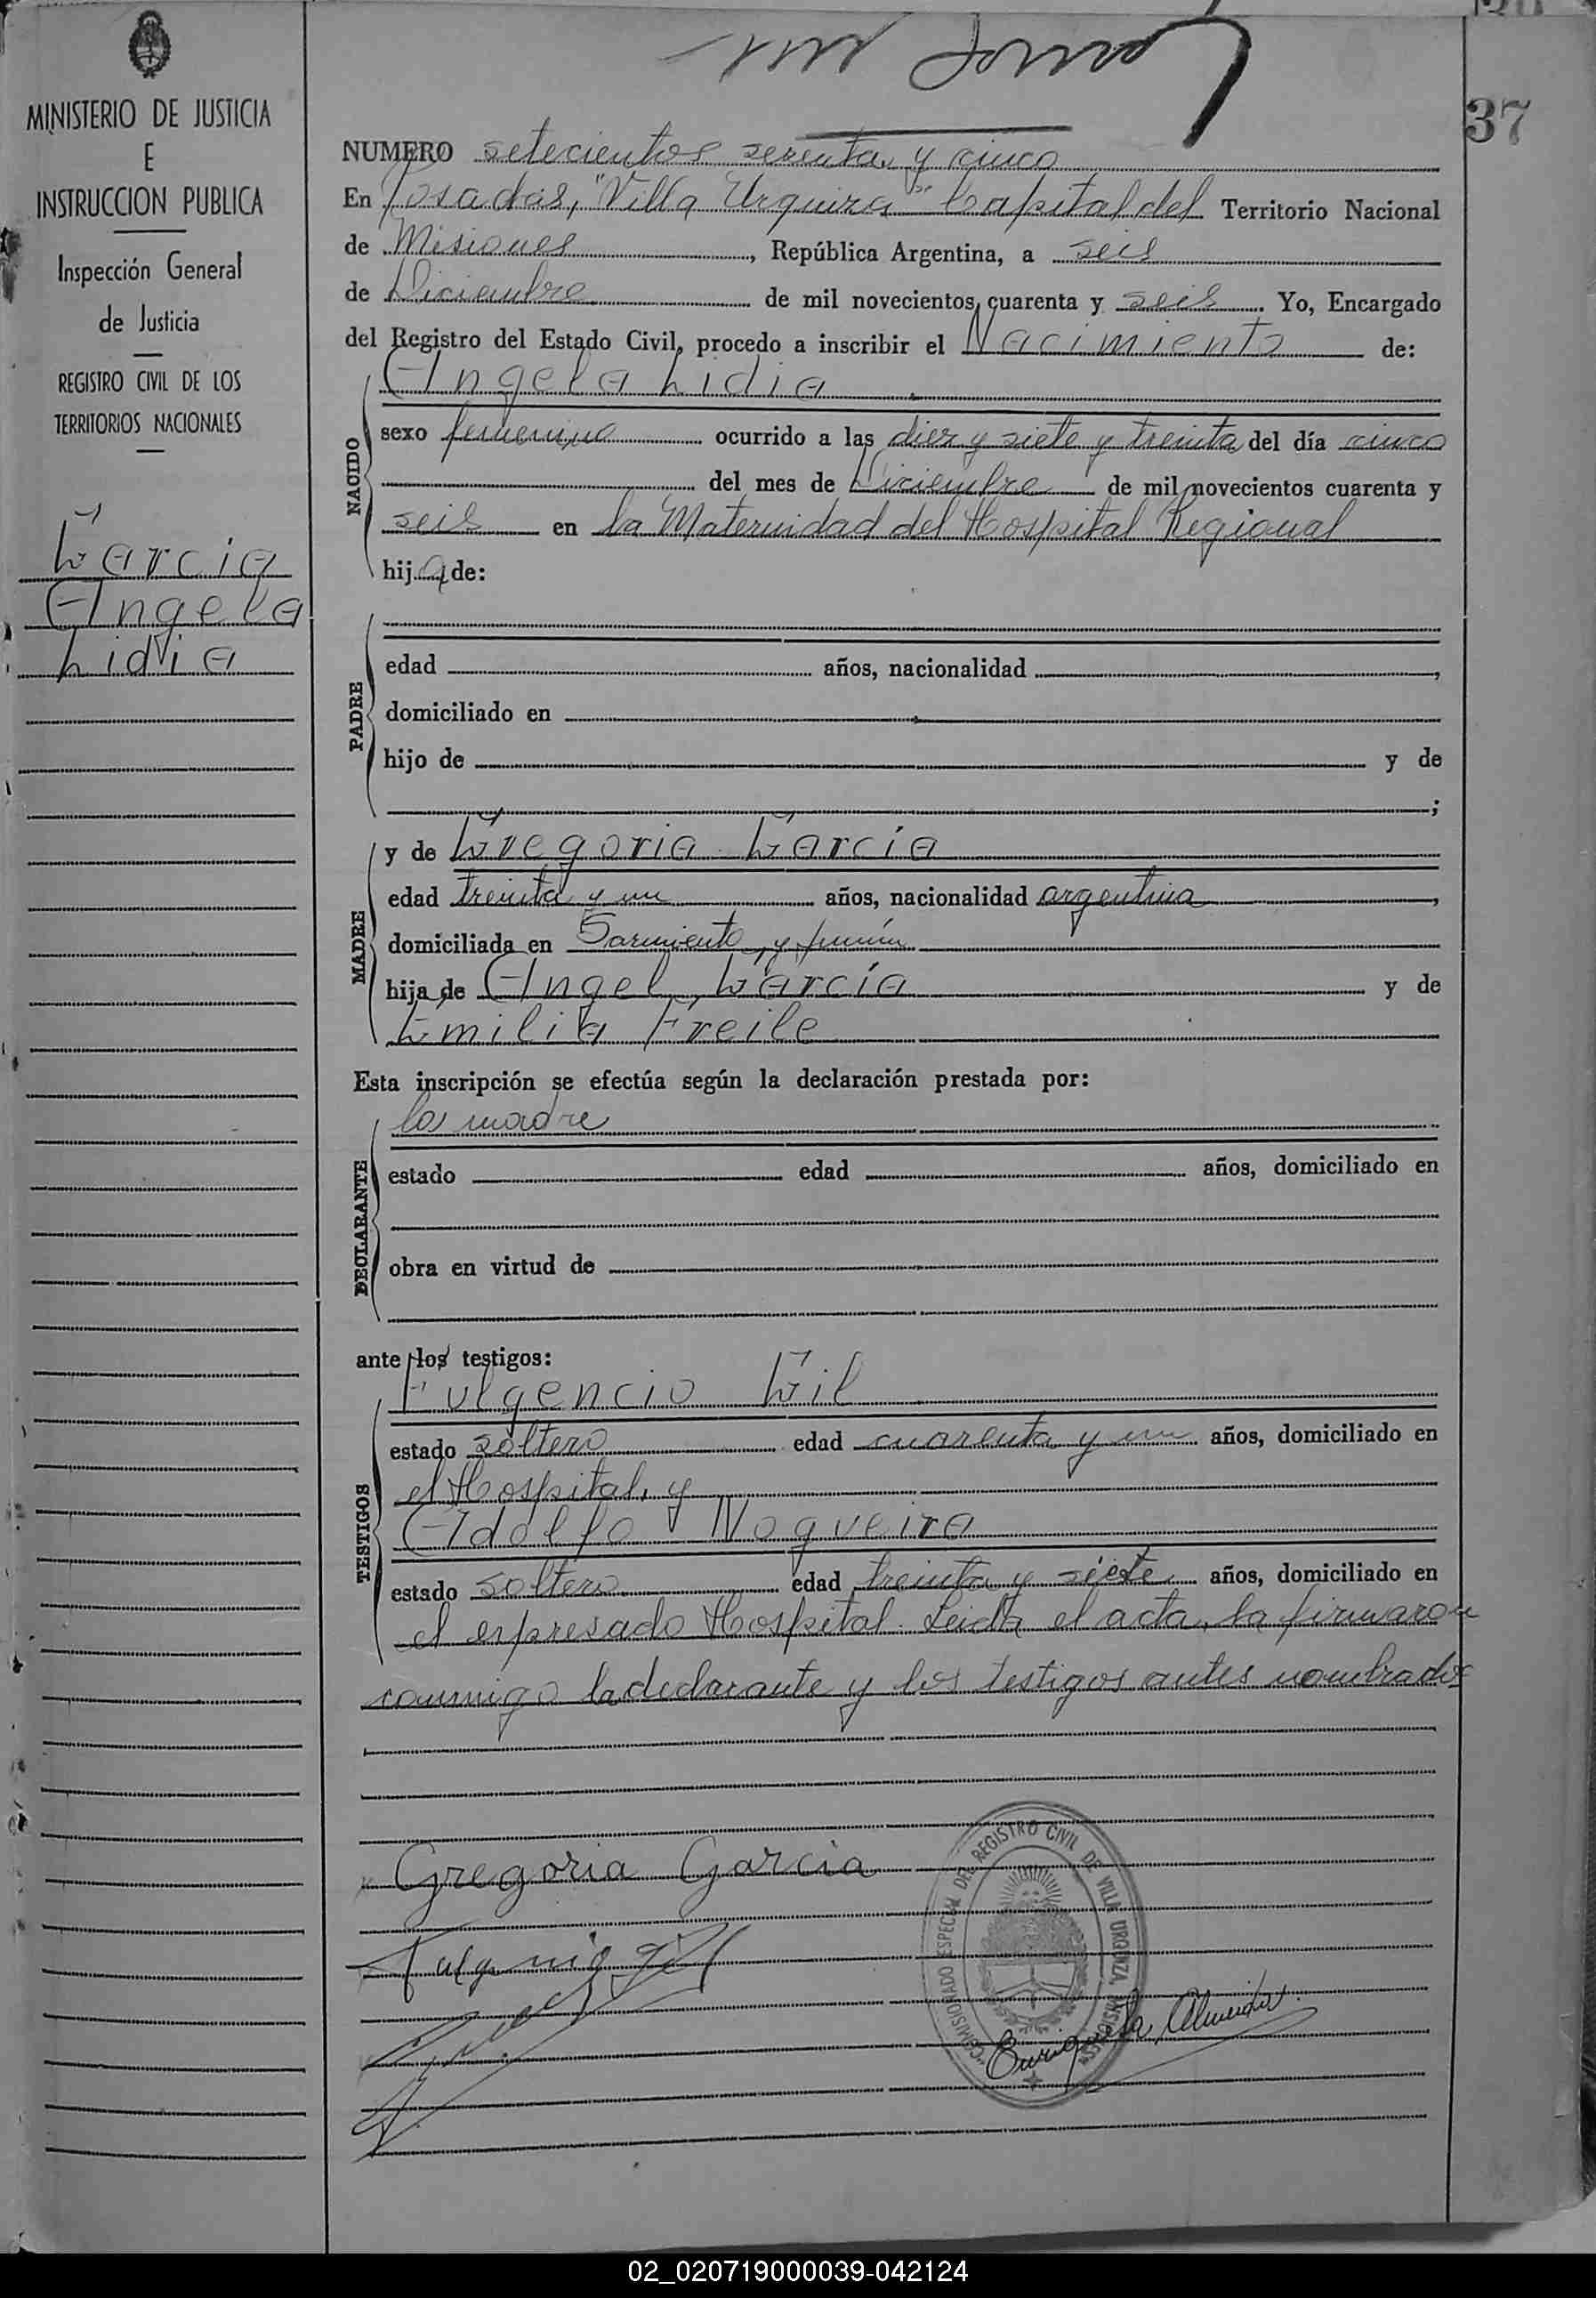 37
MINISTERIO DE JUSTICIA
E
INSTRUCCION PUBLICA
Inspección General
de Justicia
REGISTRO CIVIL DE LOS
TERRITORIOS NACIONALES
Garcia
Angela
Lidia
NUMERO setecientos sesenta y cinco
En Posadas, "Villa Urquiza" Capital del Territorio Nacional
de Misiones, República Argentina, a seis
de Diciembre de mil novecientos cuarenta y seis. Yo, Encargado
del Registro del Estado Civil, procedo a inscribir el Nacimiento de:
NACIDO
Angela Lidia
sexo femenino ocurrido a las diez y siete y treinta del día cinco
del mes de Diciembre de mil novecientos cuarenta y
seis en la Maternidad del Hospital Regional
hija de:
PADRE
edad años, nacionalidad ,
domiciliado en
hijo de y de
;
MADRE
y de Gregoria Garcia
edad treinta y un años, nacionalidad argentina,
domiciliada en Sarmiento y Junín
hija de Angel Garcia y de
Emilia Freile
Esta inscripción se efectúa según la declaración prestada por:
DECLARANTE
la madre
estado edad años, domiciliado en
obra en virtud de
ante los testigos:
TESTIGOS
Fulgencio Gil
estado soltero edad cuarenta y un años, domiciliado en
el Hospital, y
Adolfo Nogueira
estado soltero edad treinta y siete años, domiciliado en
el expresado Hospital. Leida el acta, la firmaron
conmigo la declarante y los testigos antes nombrados
Gregoria Garcia
Fulgencio Gil
COMISIONADO ESPECIAL DEL REGISTRO CIVIL DE VILLA URQUIZA, MISIONES
Enriqueta Almeida
02_020719000039-042124